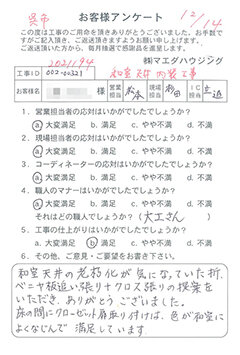 呉市
お客様アンケート
12/14
この度は工事のご用命を頂きありがとうございました。お手数で
すがご記入頂き、ご返送頂きますようお願い申し上げます。
ご返送頂いた方から、毎月抽選で感謝品を進呈します。
2021194
㈱マエダハウジング
工事ID 002-00321 和室天井内装工事
お客様名 様 営業担当 松本 現場担当 IC 立辺
1．営業担当者の応対はいかがでしたでしょうか？
a 大変満足 b. 満足 c. やや不満 d. 不満
2．現場担当者の応対はいかがでしたでしょうか？
a 大変満足 b. 満足 c. やや不満 d. 不満
3．コーディネーターの応対はいかがでしたでしょうか？
a. 大変満足 b. 満足 c. やや不満 d. 不満
4．職人のマナーはいかがでしたでしょうか？
a 大変満足 b. 満足 c. やや不満 d. 不満
それはどの職人でしょうか？（大工さん）
5．工事の仕上がりはいかがでしたでしょうか？
a. 大変満足 b 満足 c. やや不満 d. 不満
6．その他、ご意見・ご要望をお書き下さい。
和室天井の老朽化が気になっていた折、
ベニヤ板追い張り+クロス張りの提案を
いただき、ありがとうございました。
床の間にクローゼット肩取り付けは、色が和室に
よくなじんで満足しています。